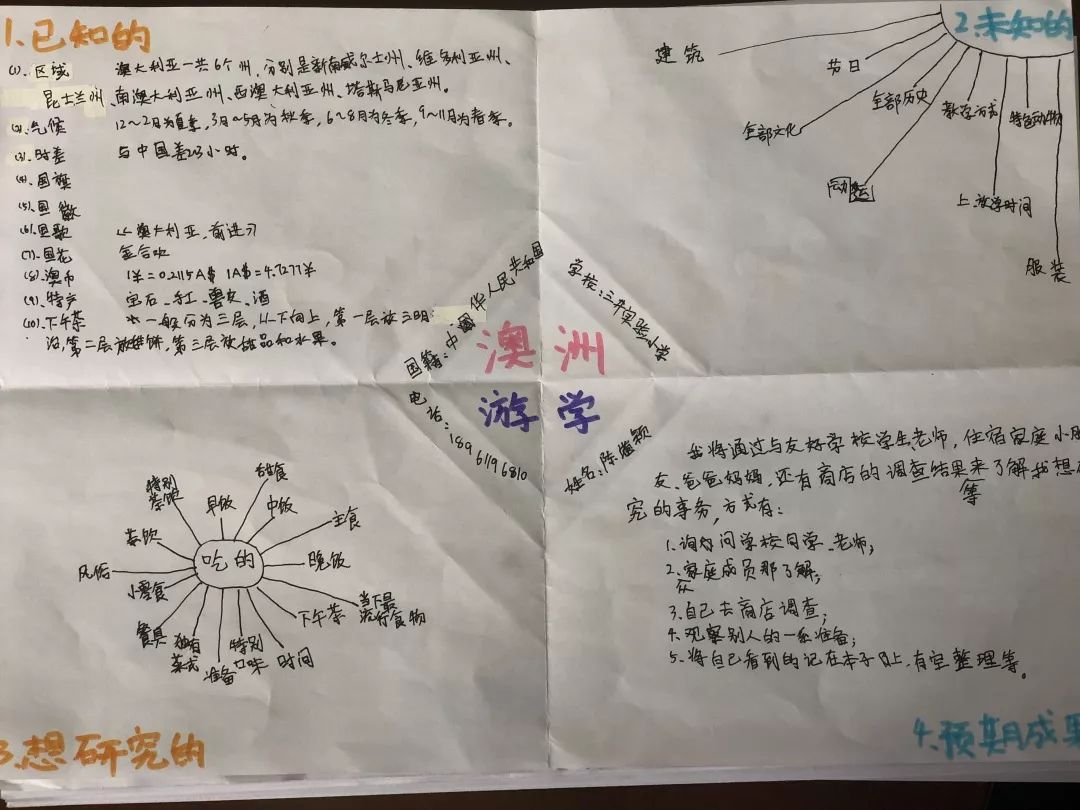 1.已知的
(1).区域 澳大利亚一共6个州,分别是新南威尔士州、维多利亚州、
昆士兰州、南澳大利亚州、西澳大利亚州、塔斯马尼亚州。
(2).气候 12~2月为夏季,3月~5月为秋季,6~8月为冬季,9~11月为春季。
(3).时差 与中国差2~3小时。
(4).国旗
(5).国徽
(6).国歌 《澳大利亚,前进》
(7).国花 金合欢
(8).澳币 1¥=0.2115A$ 1A$=4.7277¥
(9).特产 宝石、红、酒
(10).下午茶 一般分为三层,从下向上,第一层放三明
治,第二层放饼,第三层放甜品和水果。
2.未知的
建筑
节日
全部历史
教学方式
特色动物
全部文化
运
上放学时间
服装
国籍:中国华人民共和国
学校:三井实验小学
澳洲
游学
电话:18961196810
姓名:陈颖
吃的
特别
早饭
甜食
中饭
主食
晚饭
当下最
流行食物
下午茶
时间
特别
口味
准备
独有
菜式
餐具
小零食
风俗
茶饮
3.想研究的
我将通过与友好学校学生、老师,住宿家庭小朋
友、爸爸妈妈,还有商店的调查结果等来了解我想
究的事务,方式有:
1.询问学校同学、老师;
2.从家庭成员那了解;
3.自己去商店调查;
4.观察别人的一系准备;
5.将自己看到的记在本子上,有空整理等。
4.预期成果